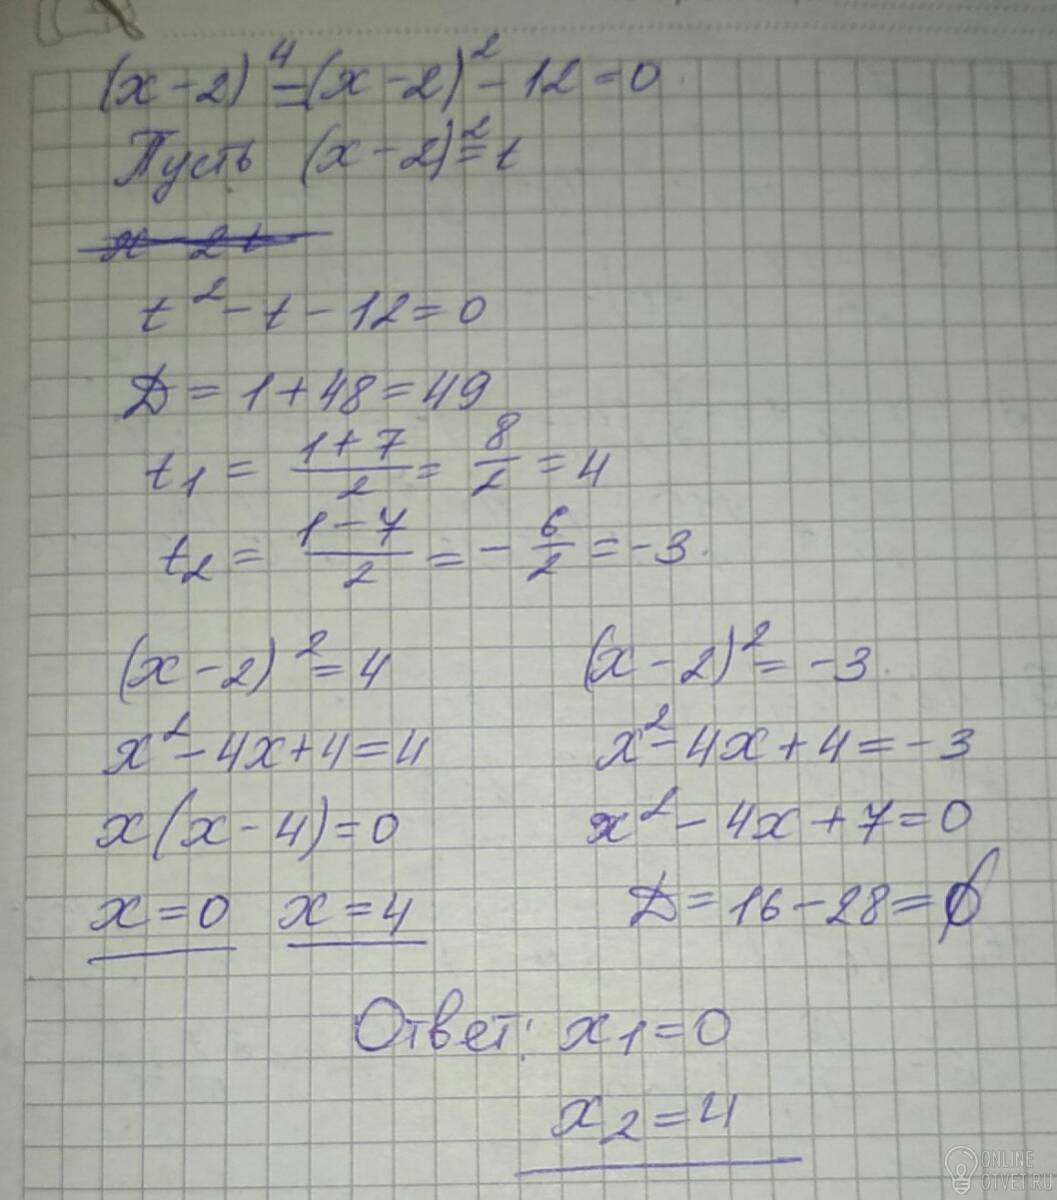 (x-2)⁴-(x-2)²-12=0
Пусть (x-2)²=t
t²-t-12=0
Д=1+48=49
t₁=(1+7)/2=8/2=4
t₂=(1-7)/2=-6/2=-3.
(x-2)²=4
x²-4x+4=4
x(x-4)=0
x=0 x=4
(x-2)²=-3
x²-4x+4=-3
x²-4x+7=0
Д=16-28=∅
Ответ: x₁=0
x₂=4
ONLINE
OTVET.RU